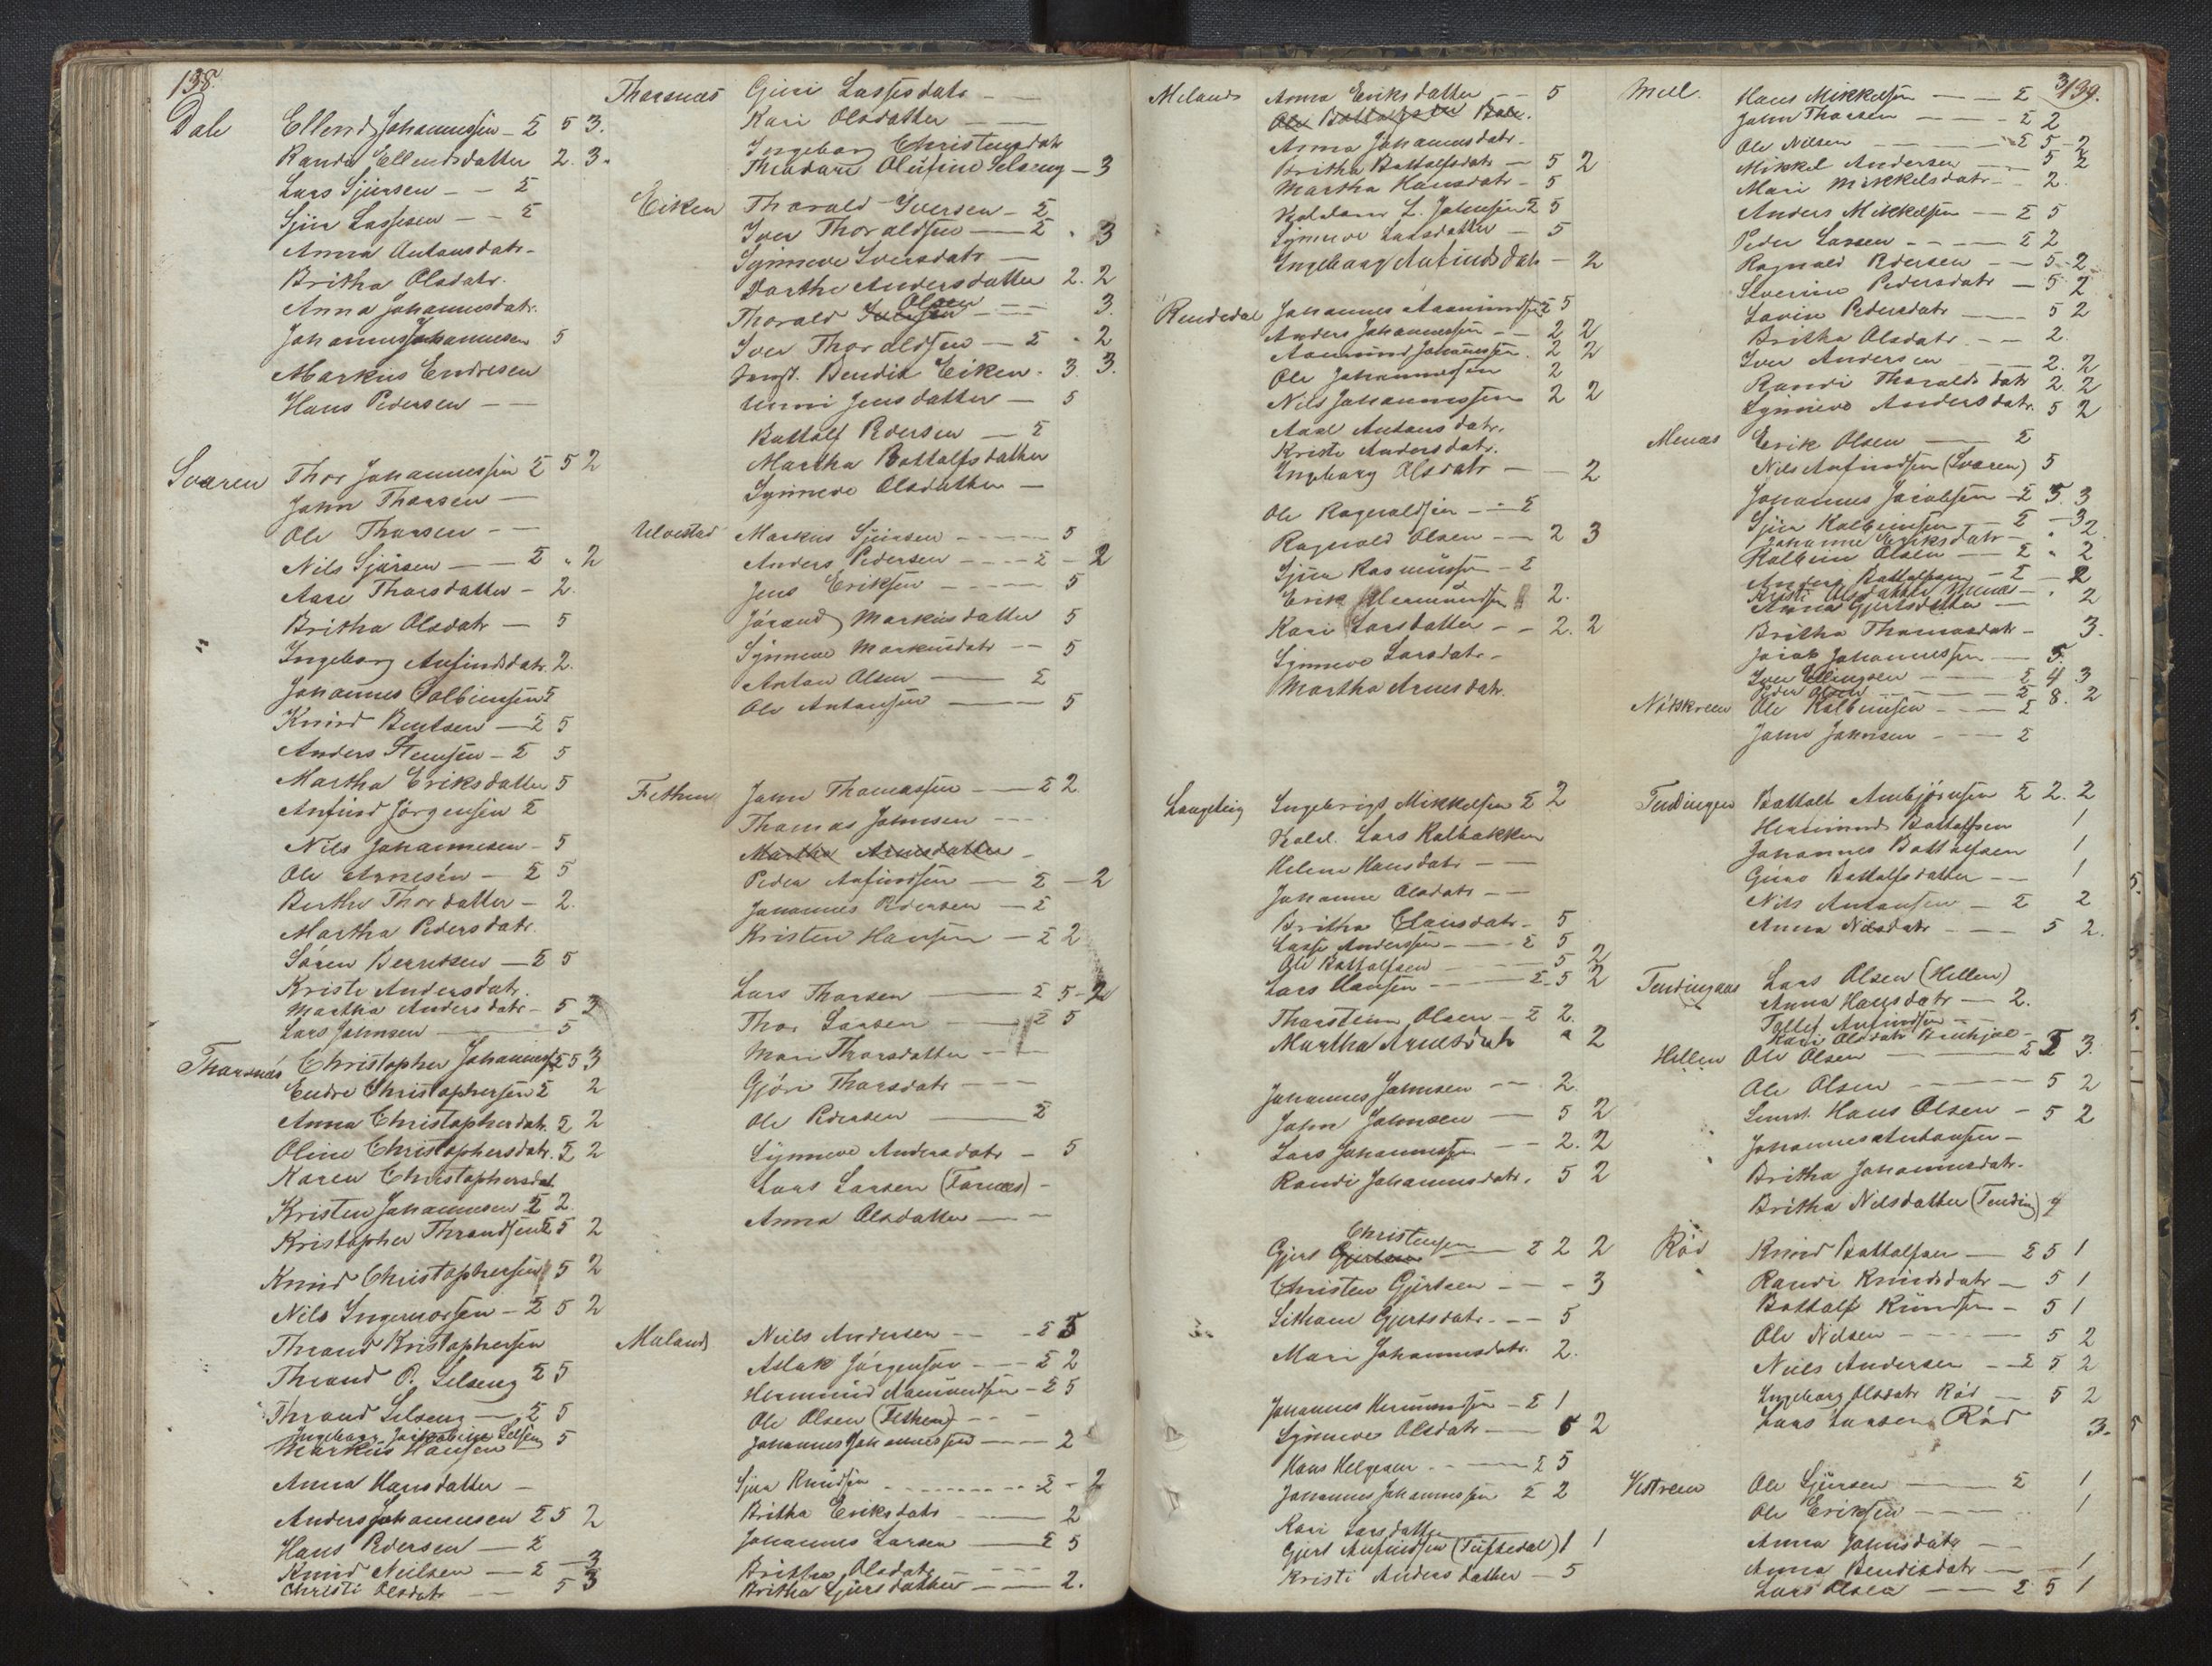 138.
Dale Ellend Johannessen - 2 5 3.
Randi Ellendsdatter 2. 3.
Lars Sjursen - - 2
Sjur Lassesen - - 2
Anna Antonsdatr -
Britha Olsdatr.
Anna Johannesdatr.
Johannes Johannesen 5
Markus Endresen
Hans Pedersen - -
Sværen Thor Johannessen 2 5 2
John Thorsen -
Ole Thorsen - -
Nils Sjursen - - 2 " 2
Aase Thorsdatter - 2.
Britha Olsdatr - 5
Ingeborg Anfindsdatr. 2.
Johannes Colbeinsen 2
Knud Bentsen - 2 5
Anders Steensen - 2 5
Martha Eriksdatter 5
Anfind Jörgensen 2
Nils Johannesen - 5
Ole Arnesen - 2 5
Berthe Thorsdatter - 2.
Martha Pedersdatr.
Sören Berentsen - 2 5
Kristi Andersdatr.
Martha Andersdatr - 5 2
Lars Johnsen - 5
Thorsnæs Christopher Johannes 2 5 3
Endre Christophersen 2 2
Anna Christophersdatr. 2 2
Oline Christophersdatr. 2 2
Karen Christophersdat
Kristen Johannesen 2 2.
Kristopher Thrandsen 2 5 2
Knud Christophersen 5 2
Nils Ingemorsen - 2 5 2
Thrand Kristophersen
Thrand P. Selseng 2 5
Thrand Selseng - 2 5
Ingeborg Jakobine Selseng
Markus Hansen 5
Anna Hansdatter -
Anders Johannesen 2 5 2
Hans Pedersen - 2
Knud Neilsen - 2 - 3
Christi Olsdatr - - 5 3
Thorsnæs Gjuri Lassesdatr - -
Kari Olsdatter - -
Ingeborg Christensdatr
Theodare Olufine Selseng - 3
Eiken Thorald Iversen - 2
Iver Thoraldsen - 2 . 3
Synneve Iversdatr -
Dorthe Andersdatter 2. 2
Olsen
Thorald Iversen - - 3.
Iver Thoraldsen - 2 . 2
Bendik Eiken. 3. 3.
Unni Jensdatter - 5
Battolf Pedersen - 2
Martha Battolfsdatter
Synneve Olsdatter -
Ulvestad Markus Sjursen - - - 5
Anders Pedersen - - - 2 - 2
Jens Eriksen - - - 5
Jórand Markusdatter 5
Synneve Markusdatr - - 5
Anton Olsen - 2
Ole Antonsen - - 5
Fethun John Thomassen - - 2 2
Thomas Johnsen - - -
Martha Arnesdatter -
Peder Anfindsen - 2 - 2
Johannes Pedersen - 2
Kristen Hansen - 2 2
Lars Thorsen - 2 5 - 2
Thor Larsen - 2 5
Mari Thorsdatter - -
Gjöri Thorsdatr - - -
Ole Pedersen - 2
Synneve Andersdatr - 5
Lars Larsen (Farnæs) -
Anna Olsdatter - -
Meland Neils Andersen - - - 2 5
Aslak Jörgensen - - 2 2
Hermund Aamundsen - 2 5
Ole Olsen (Fethun) - - -
Johannes Johannessen - - 2
Sjur Knudsen - - - 2 - 2
Britha Eriksdatr - 2
Johannes Larsen - 2 5
Britha Olsdatr - - -
Britha Sjursdatter - - 2.
Melands Anna Eriksdatter - - 5
Anna Johannesdatr.
Britha Battolfsdatr - 5 2
Martha Hansdatr - 5
L. Johnsen 2 5
Synneve Larsdatter - 5
Ingeborg Anfindsdatr - 2
Rendedal Johannes Aamundsen 2 5
Anders Johannessen - - 2 2
Aamund Johannessen. 2 2
Ole Johannessen 2
Nils Johannessen 2 2
Aase Antonsdatr.
Kristi Andersdatr.
Ingeborg Olsdatr - - 2
Ole Ragnvaldsen - - 2
Ragnvald Olsen - - 2 3
Sjur Rasmussen - 2
Erik Hermundsen 2.
Kari Larsdatter - - 2. 2
Synneve Larsdatr -
Martha Arnesdatr.
Langeteig Ingebrigt Mikkelsen 2 2
Lars Kalbakken
Helene Hansdatr - -
Johanne Olsdatr - -
Britha Clausdatr - 5
Lasse Anderssen - - 2 5
Ole Battolfsen - - 5 2
Lars Hansen - - - 2 - 5 2
Thorstein Olsen - 2 2.
Martha Arnesdatr " 2
Johannes Johnsen - - 2.
John Johnsen - 5 2
Lars Johannessen - - 2. 2
Randi Johannesdatr. 5 2
Christensen
Gjert Gjertsen - 2 2 2
Christen Gjertsen - - - 3
Gjertsdatr. - - 5
Mari Johannesdatr. 2.
Johannes Hermundsen - 2 1
Synneve Olsdatr - 5 2
Hans Helgesen - - - 2 5
Johannes Johannessen 2 2
Kari Larsdatter
Gjert Anfindsen (Tuftedal) 1 1
Kristi Andersdatter - 5
139.
Mell. Hans Mikkelsen - - 2 3
John Thorsen - - - 2 2
Ole Nilsen - - - 2 5 - 2
Mikkel Andersen - 5 2
Mari Mikkelsdatr - - 2.
Anders Mikkelsen - - 2 5
Peder Larsen - - - 2 2
Ragnald Pedersen - - 5 - 2
Severine Pedersdatr - 5 2
Lovise Pedersdatr - 5 2
Britha Olsdatr. - - 2.
Iver Andersen - 2. 2
Randi Thoraldsdatr 2. 2
Synneve Andersdatr. 5 2
Menæs Erik Olsen - 2
Nils Anfindsen (Sværen) 5
Johannes Jacobsen - 2 5. 3
Sjur Kolbeinsen - - 2 - 3
Johanne Eriksdatr - . 2
Kolbein Olsen - - 2 " 2
Anders Battolfsen - 2 - 2
Kristi Olsdatter Menæs - .
Anna Gjertsdatter - 2
Britha Thomasdatr - 3.
Jacob Johannessen - 5.
Iver Ellingsen - - 2 4 3
Peder Olsen - - - 2 8. 2
Nótskreen Ole Kolbeinsen - - - 2
John Johnsen - - - 2
Tendingen Battolf Anbjörnsen 2 2. 2
Hermund Battolfsen 1
Johannes Battolfsen 1
Guro Battolfsdatter - - 1
Nils Antonsen - 2 2
Anna Nilsdatr - - - 5 2.
Tendingaas Lars Olsen (Hellen)
Anna Hansdatr - 2.
Tollef Anfindsen - -
Kari Olsdatr
Hellen Ole Olsen - - 2 2 3.
Ole Olsen - - - 5 2
Hans Olsen - 5 2
Johannes Antonsen -
Britha Johannesdatr.
Britha Nilsdatter (Tending) 4
Röd Knud Battolfsen - 2 5 1
Randi Knudsdatr - 5 1
Battolf Knudsen - 5 1
Ole Nilsen - - - 5 2
Neils Andersen - - 2 5 2
Ingeborg Olsdatr Röd - 5 2
Lars Larsen Röd 3.
Vetreen Ole Sjursen - 2 1
Ole Eriksen - - - 1
Anna Johnsdatr - -
Anna Bendiksdatr - - 1
Lars Olsen - - 2 5 1